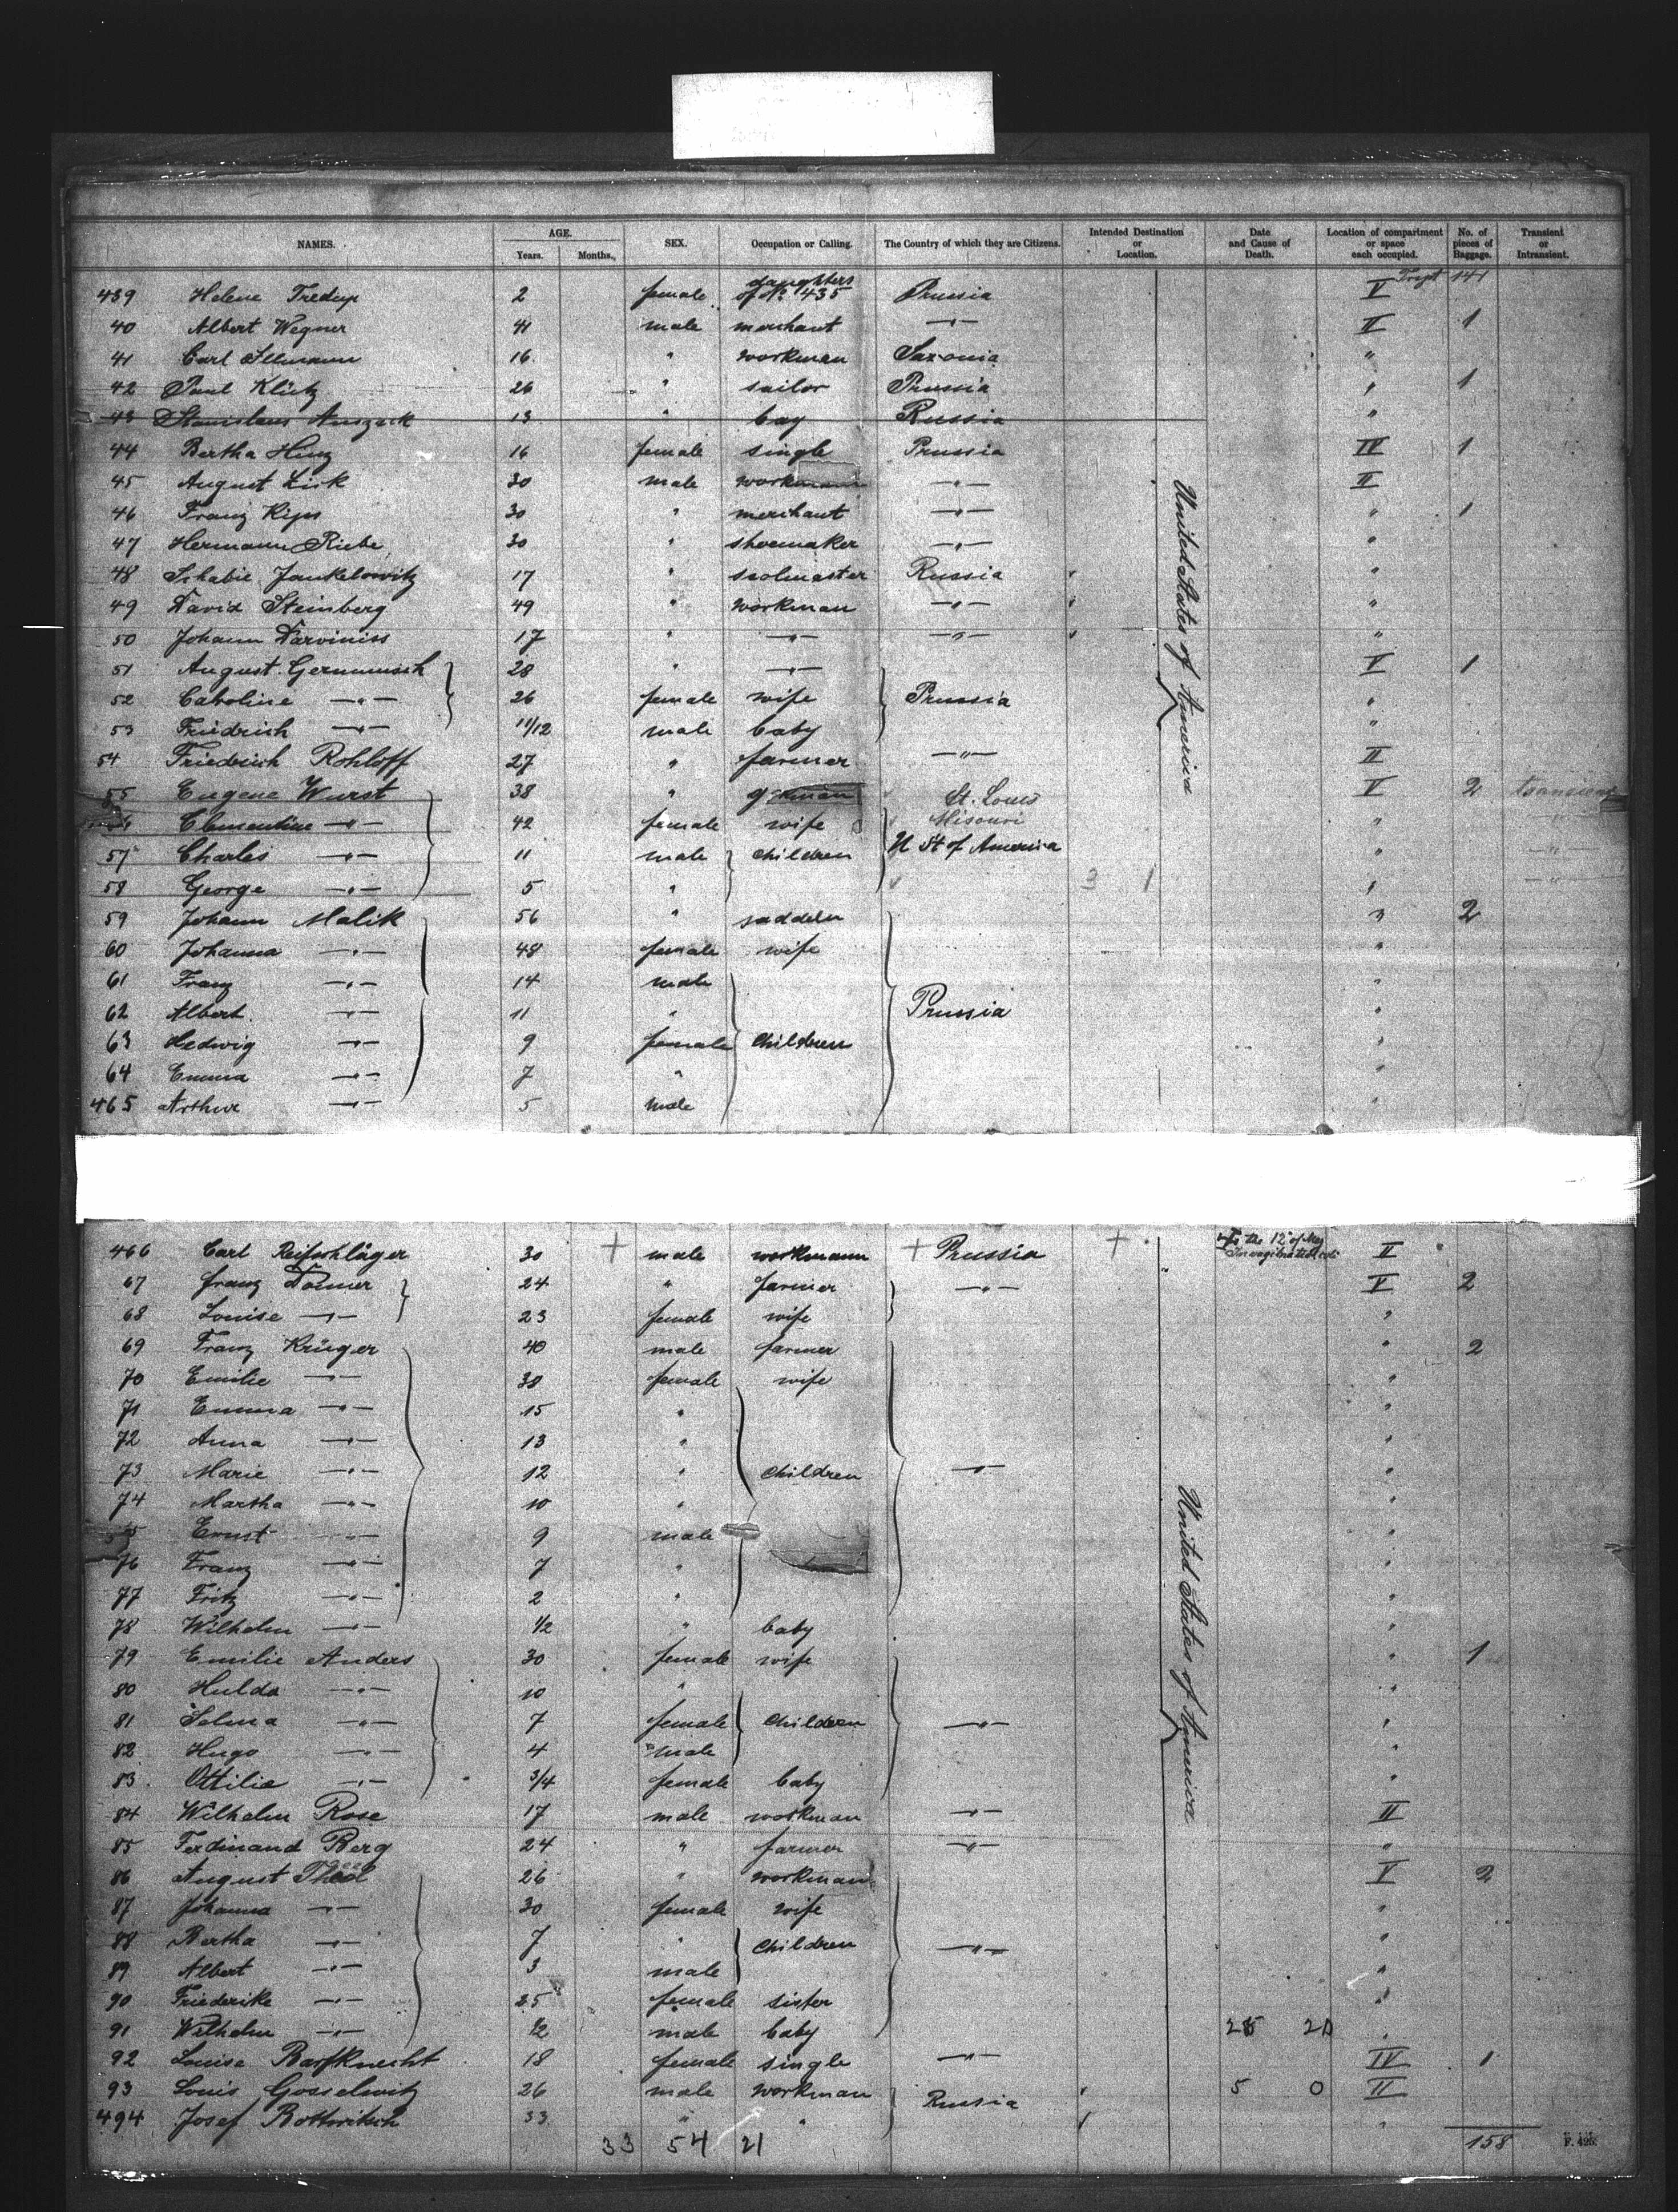 NAMES. AGE. SEX. Occupation or Calling. The Country of which they are Citizens. Intended Destination or Location. Date and Cause of Death. Location of compartment or space each occupied. No. of pieces of Baggage. Transient or Intransient.
Years. Months.
daughters Trspt 141
439 Helene Tredup 2 female of No 435 Prussia V
40 Albert Wegner 41 male merchant —"— II 1
41 Carl Illmann 16 " workman Saxonia "
42 Paul Klütz 26 " sailor Prussia " 1
43 Stanislaus 13 " boy Russia "
44 Bertha Hinz 16 female single Prussia IV 1
45 August Lisk 30 male workmann —"— II
46 Franz Kips 30 " merchant —"— " 1
47 Hermann Riebe 30 " shoemaker —"— "
48 Schabie Jankelowitz 17 " scolmaster Russia "
49 David Steinberg 49 " workman —"— "
50 Johann Darviniss 17 " —"— —"— "
51 August Germmusch 28 " —"— V 1
52 Caroline —"— 26 female wife Prussia "
53 Friedrich —"— 11/12 male baby "
54 Friedrich Rohloff 27 " farmer —"— II
55 Eugene Wurst 38 " St. Louis V 2 transient
Clementine —"— 42 female wife Misouri " "
57 Charles —"— 11 male children U St of America " —"—
58 George —"— 5 " 3 1 " —"—
59 Johann Malik 56 " saddeler " 2
60 Johanna —"— 48 female wife "
61 Franz —"— 14 male "
62 Albert —"— 11 " Prussia "
63 Hedwig —"— 9 female children "
64 Emma —"— 7 " "
465 Arthur —"— 5 male "
United States of America
466 Carl Reifschläger 30 + male workmann + Prussia + the 12 of May II
67 Franz Domer 24 " farmer —"— V 2
68 Louise —"— 23 female wife "
69 Franz Krüger 40 male farmer " 2
70 Emilie —"— 38 female wife "
71 Emma —"— 15 " "
72 Anna —"— 13 " "
73 Marie —"— 12 " children —"— "
74 Martha —"— 10 " "
Ernst —"— 9 male "
76 Franz —"— 7 " "
77 Fritz —"— 2 " "
78 Wilhelm —"— 1/2 " baby "
79 Emilie Anders 30 female wife " 1
80 Hulda —"— 10 " "
81 Selma —"— 7 female children —"— "
82 Hugo —"— 4 male "
83 Ottilie —"— 3/4 female baby "
84 Wilhelm Rose 17 male workman —"— II
85 Ferdinand Berg 24 " farmer —"— "
86 August Theel 26 " workman V 2
87 Johanna —"— 30 female wife "
88 Bertha —"— 7 " children —"— "
89 Albert —"— 3 male "
90 Friederike —"— 25 female sister "
91 Wilhelm —"— 1/2 male baby 25 20 "
92 Louise Barfknecht 18 female single —"— IV 1
93 Louis Gosselwitz 26 male workman Russia 5 0 II
494 Josef Bottwitsch 33 " " "
United States of America
33 54 21 158 F. 495.